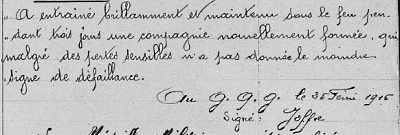 „ A entrainé brillamment et maintenu sous le feu pen-
„ dant trois jours une compagnie nouvellement formée, qui
malgré des pertes sensibles n'a pas donnée le moindre
signe de défaillance.
Au G. Q. G. le 25 Févri. 1916
Signé: Joffre